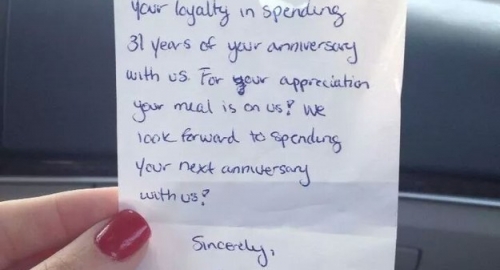 your loyalty in spending
31 years of your anniversary
with us. For your appreciation
your meal is on us! We
look forward to spending
your next anniversary
with us!
Sincerely,